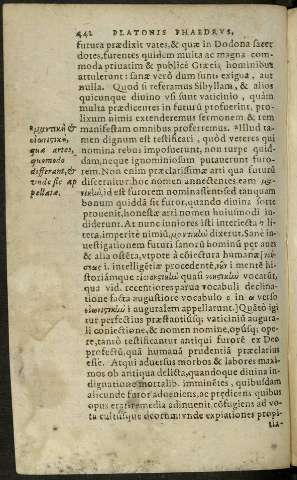 442 PLATONIS PHAEDRVS,
futura prædixit vates, & quæ in Dodona sacer
dotes, furentes quidem multa ac magna com
moda priuatim & publicè Græcis hominibus
attulerunt: sanæ verò dum sunt, exigua, aut
nulla. Quod si referamus Sibyllam, & alios
quicunque diuino vsi sunt vaticinio, quàm
multa prædicentes in futurū profuerint, pro-
lixum nimis extenderemus sermonem & rem
manifestam omnibus proferremus. Illud ta-
men dignum est testificari, quòd veteres qui
nomina rebus imposuerunt, non turpe quid-
dam, neque ignominiosum putauerunt furo-
rem. Non enim præclarissimæ arti qua futura
discernitur, hoc nomen annectentes eam
, id est furorem nominassent: sed tanquam
bonum quiddā sit furor, quando diuina sorte
prouenit, honestæ arti nomen huiusmodi in
diderunt. At nunc iuniores isti interiecta τ li
tera, imperitè nimiū, μαντικὴν dixerūt. Sane in-
uestigationem futuri sanorū hominū per aues
& alia ostēta, vtpote à coniectura humana
i. intelligētiæ procedentē, νοῦν i. mentē hi-
storiámque οἰονοϊστικὴν quasi vocarūt,
qua vid. recentiores parua vocabuli declina-
tione facta augustiore vocabulo ο in ω verso
οἰωνιστικὴν i. auguralem appellarunt. Quātò igi
tur perfectius præstantiúsq; vaticiniū augura-
li coniectione, & nomen nomine, opúsq; ope-
re, tantò testificantur antiqui furorē ex Deo
profectū, qua humana prudentia præclarius
esse. Atqui aduersus morbos & labores maxi
mos ob antiqua delicta, quandoque diuina in-
dignatione mortalib. imminētes, quibusdam
alicunde furor adueniens, ac prædicens quibus
opus erat remedia adinuenit, cōfugiens ad vo-
ta cultúsque deorum, vnde expiationes propi-
tia-
μαντικὴ &
οἰωνιστικὴ,
quæ artes,
quomodo
differant, &
vnde sic ap
pellatæ.